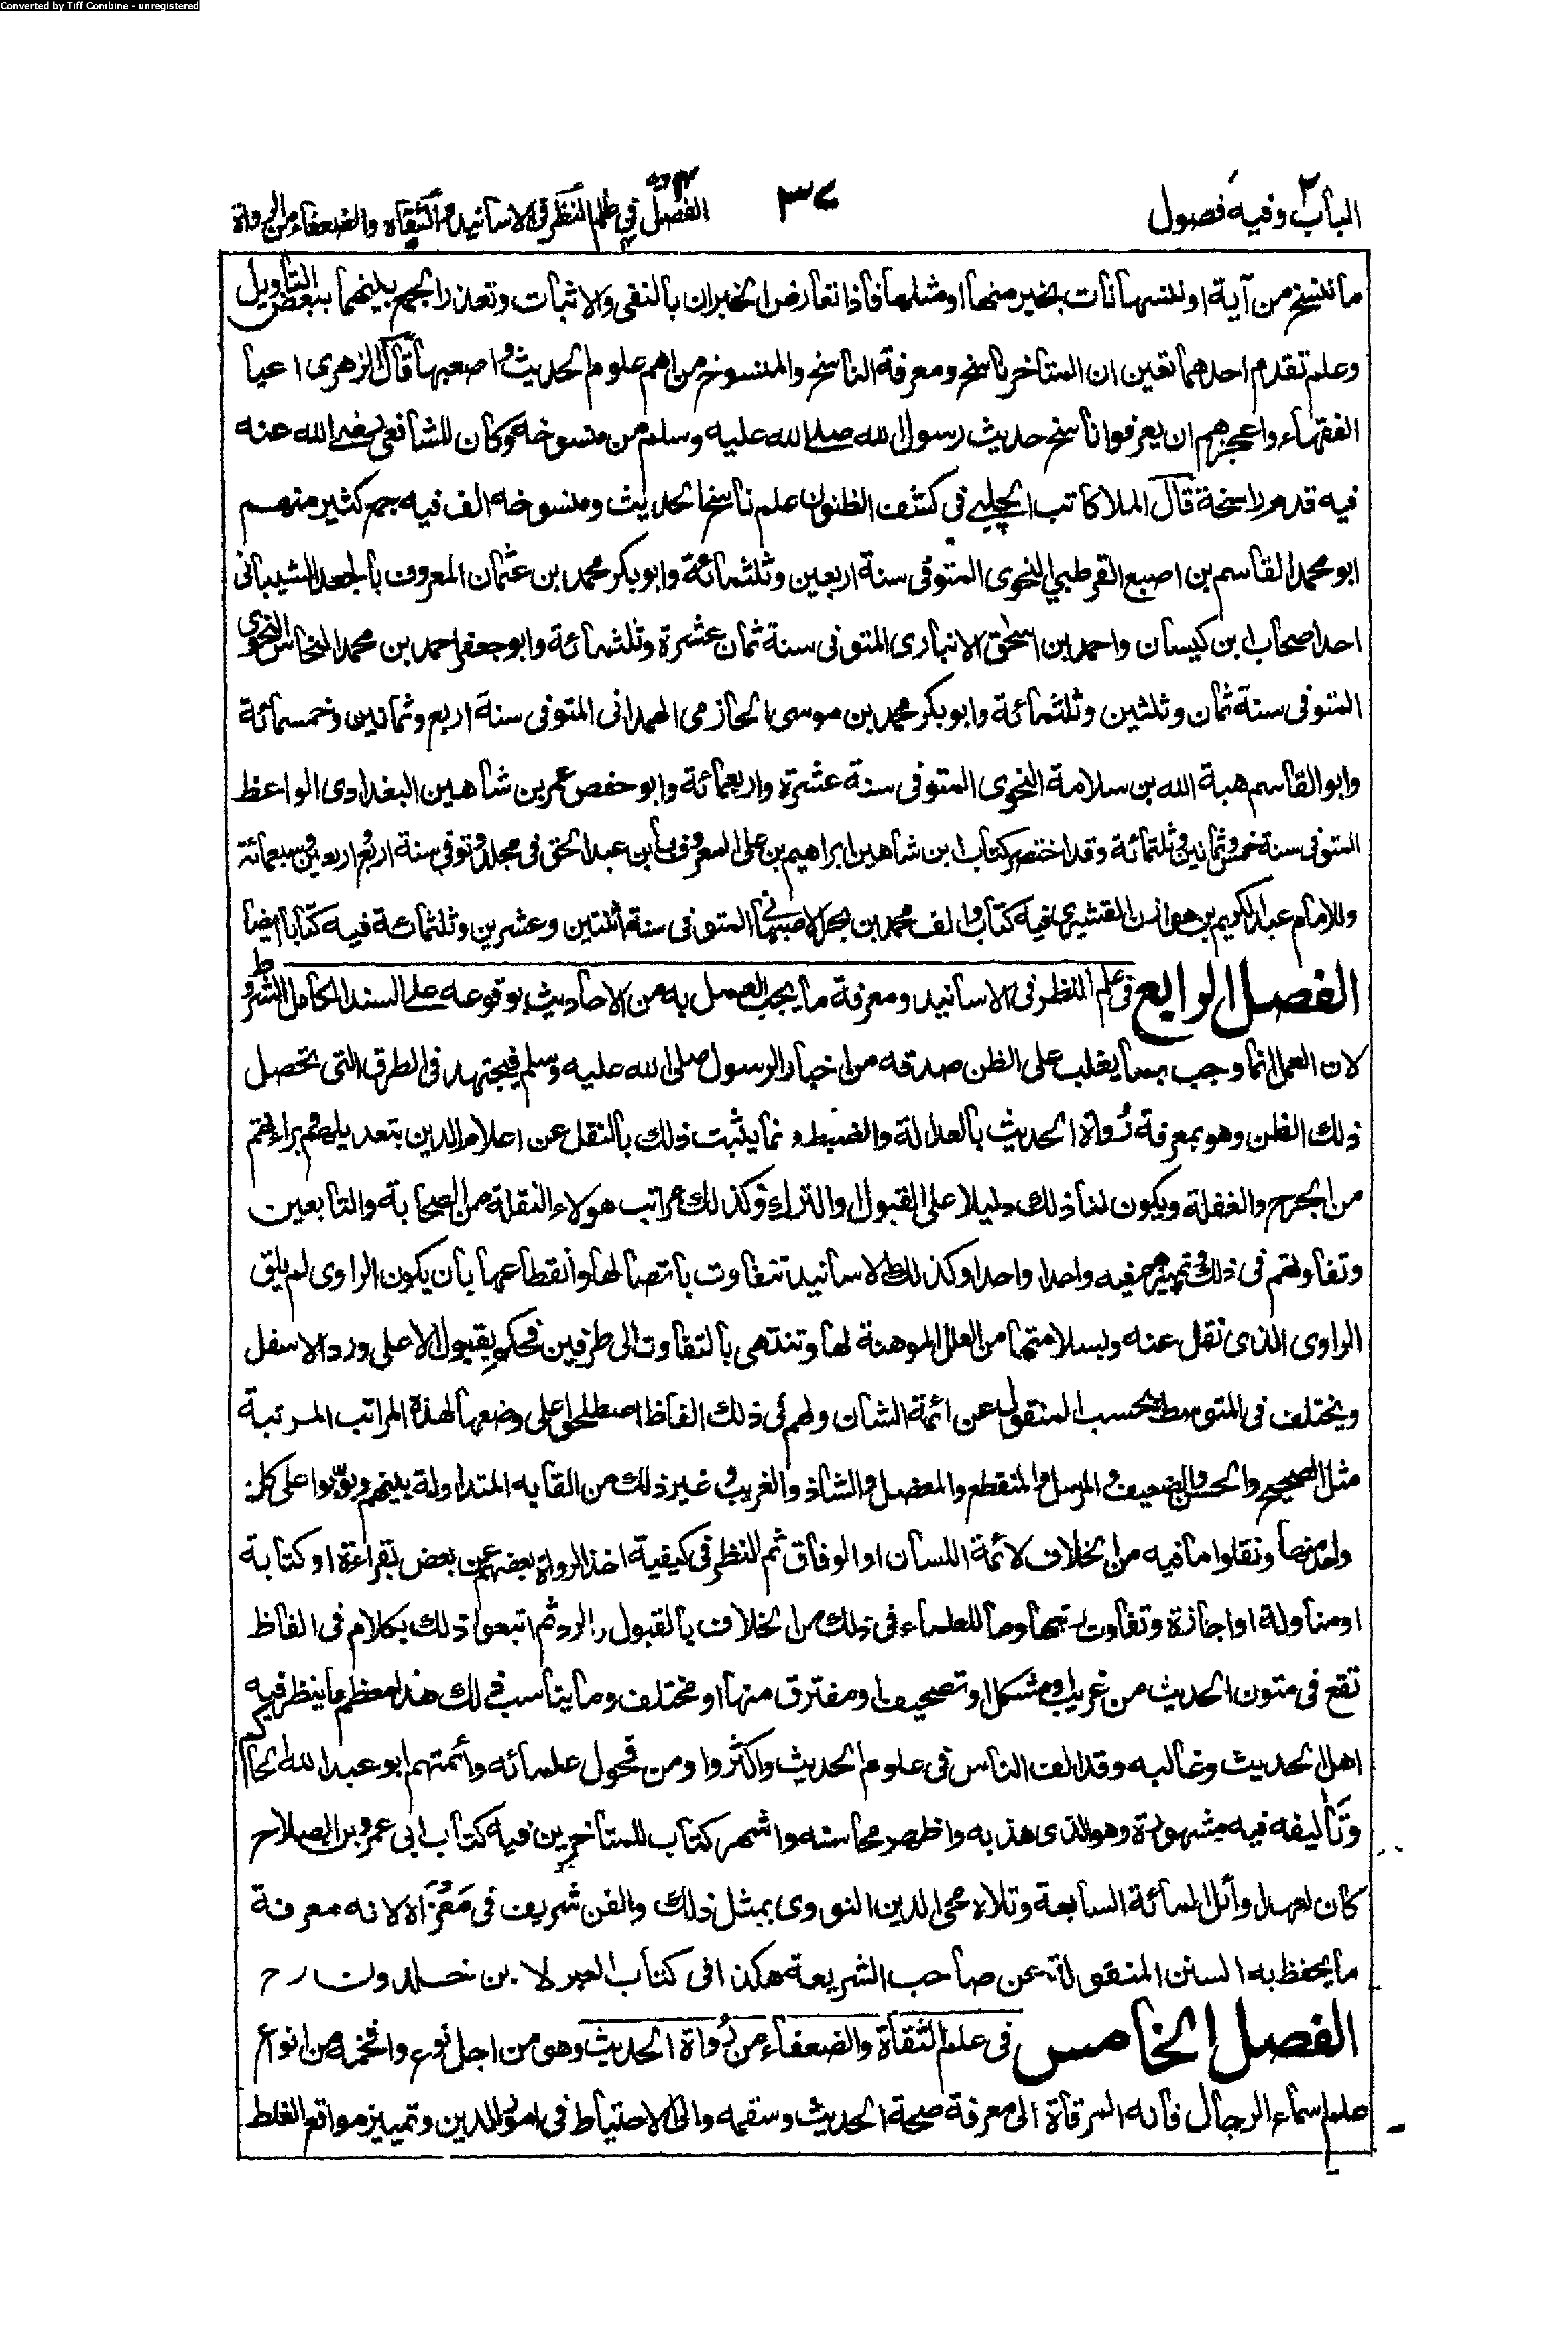 Converted by Tiff Combine - unregistered
الباب ٢ وفيه فصول
٣٧
الفصل ٤ و٥ في علم النظر في الاسانيد والثقاة والضعفاء من الرواة
ما ننسخ من آية او ننسها نات بخير منها او مثلها فاذا تعارض الخبران بالنفي والاثبات وتعذر الجمع بينهما ببعض التأويل
وعلم تقدم احدهما تعين ان المتأخر ناسخ ومعرفة الناسخ والمنسوخ من اهم علوم الحديث واصعبها قال الزهرى اعيا
الفقهاء واعجزهم ان يعرفوا ناسخ حديث رسول الله صلى الله عليه وسلم من منسوخه وكان للشافعي رضي الله عنه
فيه قدم راسخة قال الملا كاتب الچلپي في كشف الظنون علم ناسخ الحديث ومنسوخه الف فيه جمع كثير منهم
ابو محمد القاسم بن اصبع القرطبي النحوى المتوفى سنة اربعين وثلثمائة وابو بكر محمد بن عثمان المعروف بالجعد الشيبانى
احد اصحاب ابن كيسان واحمد بن اسحٰق الانبارى المتوفى سنة ثمان عشرة وثلثمائة وابو جعفر احمد بن محمد النحاس النحوى
المتوفى سنة ثمان وثلثين وثلثمائة وابو بكر محمد بن موسى الحازمى الهمدانى المتوفى سنة اربع وثمانين وخمسمائة
وابو القاسم هبة الله بن سلامة النحوى المتوفى سنة عشرة واربعمائة وابو حفص عمر بن شاهين البغدادى الواعظ
المتوفى سنة خمس وثمانين وثلثمائة وقد اختصر كتاب ابن شاهين ابراهيم بن على المعروف بابن عبد الحق فى مجلد وتوفى سنة اربع اربعين وسبعمائة
وللامام عبد الكريم بن هوازن القشيرى فيه كتاب والف محمد بن بحر الاصبهانى المتوفى سنة اثنتين وعشرين وثلثمائة فيه كتابا ايضا
الفصل الرابع فى علم النظر فى الاسانيد ومعرفة ما يجب العمل به من الاحاديث بوقوعه على السند الكامل الشروط
لان العمل انما وجب بما يغلب على الظن صدقه من اخبار الرسول صلى الله عليه وسلم فيجتهد فى الطرق التى تحصل
ذلك الظن وهو بمعرفة رُواة الحديث بالعدالة والضبط وانما يثبت ذلك بالنقل عن اعلام الدين بتعديلهم وبراءتهم
من الجرح والغفلة ويكون لنا ذلك دليلا على القبول او الترك وكذلك مراتب هولاء النقلة من الصحابة والتابعين
وتفاوتهم فى ذلك وتميزهم فيه واحدا واحدا وكذلك الاسانيد تتفاوت باتصالها وانقطاعها بان يكون الراوى لم يلق
الراوى الذى نقل عنه وبسلامتها من العلل الموهنة لها وتنتهى بالتفاوت الى طرفين فحكم بقبول الاعلى ورد الاسفل
ويختلف فى المتوسط بحسب المنقول عن ائمة الشان ولهم فى ذلك الفاظ اصطلحوا على وضعها لهذه المراتب المرتبة
مثل الصحيح والحسن والضعيف والمرسل والمنقطع والمعضل والشاذ والغريب وغير ذلك من القابه المتداولة بينهم وبوّبوا على كل
واحد منها ونقلوا ما فيه من الخلاف لائمة اللسان او الوفاق ثم النظر فى كيفية اخذ الرواة بعضهم عن بعض بقراءة او كتابة
او مناولة او اجازة وتفاوت رتبها وما للعلماء فى ذلك من الخلاف بالقبول والرد ثم اتبعوا ذلك بكلام فى الفاظ
تقع فى متون الحديث من غريب او مشكل او تصحيف او مفترق منها او مختلف وما يناسب ذلك هذا معظم ما ينظر فيه
اهل الحديث وغالبه وقد الف الناس فى علوم الحديث واكثروا ومن فحول علمائه وأئمتهم ابو عبد الله الحاكم
وتأليفه فيه مشهورة وهو الذى هذبه واظهر محاسنه واشهر كتاب للمتاخرين فيه كتاب ابى عمرو بن الصلاح
كان لعهد اوائل المائة السابعة وتلاه محى الدين النووى بمثل ذلك والفن شريف فى مَغْزَاه لانه معرفة
ما يحفظ به السنن المنقولة عن صاحب الشريعة هكذا فى كتاب العبر لابن خلدون رح
الفصل الخامس فى علم الثقاة والضعفاء من رُواة الحديث وهو من اجل نوع وافخمه من انواع
علم اسماء الرجال فانه المرقاة الى معرفة صحة الحديث وسقمه والى الاحتياط فى امور الدين وتمييز مواقع الغلط